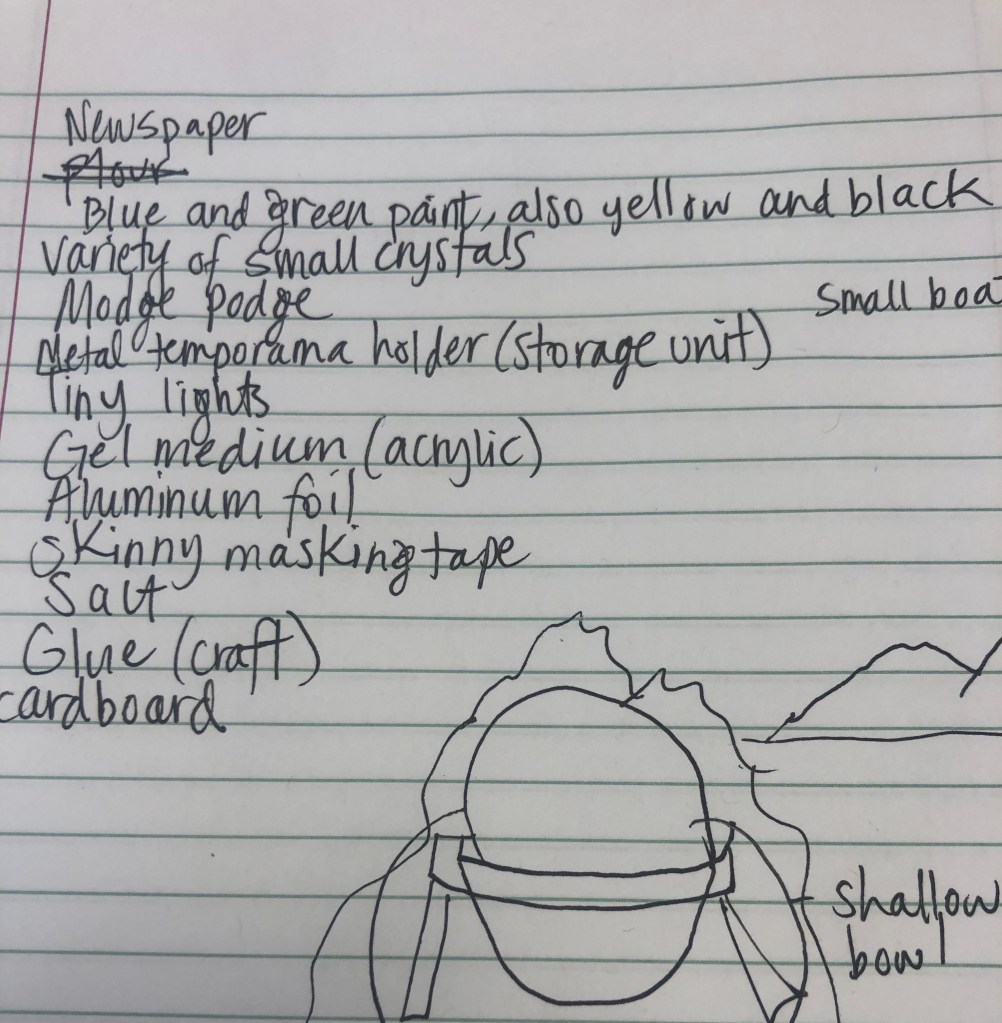 Newspaper
Flour
Blue and green paint, also yellow and black
Variety of small crystals
Modge podge
Small boa
Metal temporama holder (storage unit)
Tiny lights
Gel medium (acrylic)
Aluminum foil
Skinny masking tape
Salt
Glue (craft)
cardboard
shallow
bowl